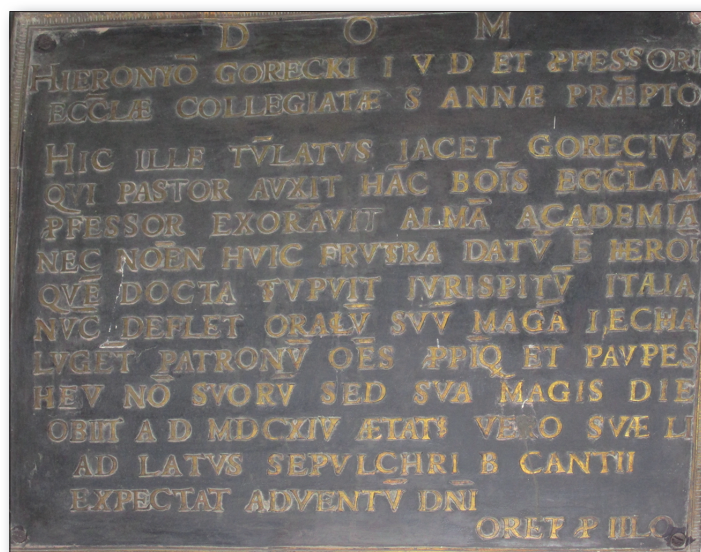 D O M
HIERONYŌ GORECKI I V D ET ꝒFESSORI
ECCLÆ COLLEGIATÆ S ANNÆ PRÆPTO
HIC ILLE TV̄LATVS IACET GORECIVS
QVI PASTOR AVXIT HĀC BOIS ECCLAM
ꝒFESSOR EXORAVIT ALMĀ ACADEMIĀ
NEC NOEN HVIC FRVSTRA DATV̄ E HEROI
QVĒ DOCTA SVPVIT IVRISPITV̄ ITAIA
NV̄C DEFLET ORALV̄ SVV̄ MAGA IECHA
LVGET PATRONV̄ OES ꝒPIQ ET PAVPES
HEV NŌ SVORV̄ SED SVA MAGIS DIE
OBIIT A D MDCXIV ÆTATS VERO SVÆ LI
AD LATVS SEPVLCHRI B CANTII
EXPECTAT ADVENTV̄ DNI
ORET Ꝓ IILO